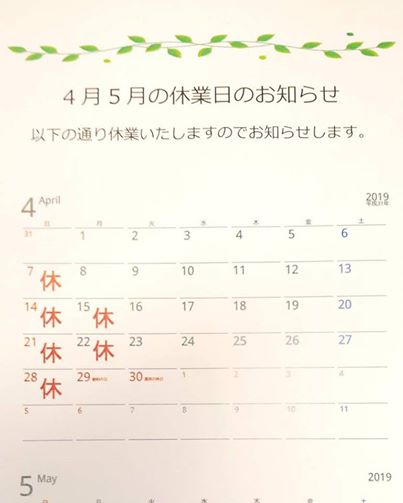 ４月５月の休業日のお知らせ
以下の通り休業いたしますのでお知らせします。
4 April 2019
平成31年
日 月 火 水 木 金 土
31 1 2 3 4 5 6
7 休 8 9 10 11 12 13
14 休 15 休 16 17 18 19 20
21 休 22 休 23 24 25 26 27
28 休 29 昭和の日 30 国民の休日 1 2 3 4
5 6 7 8 9 10 11
5 May 2019
日 月 火 水 木 金 土